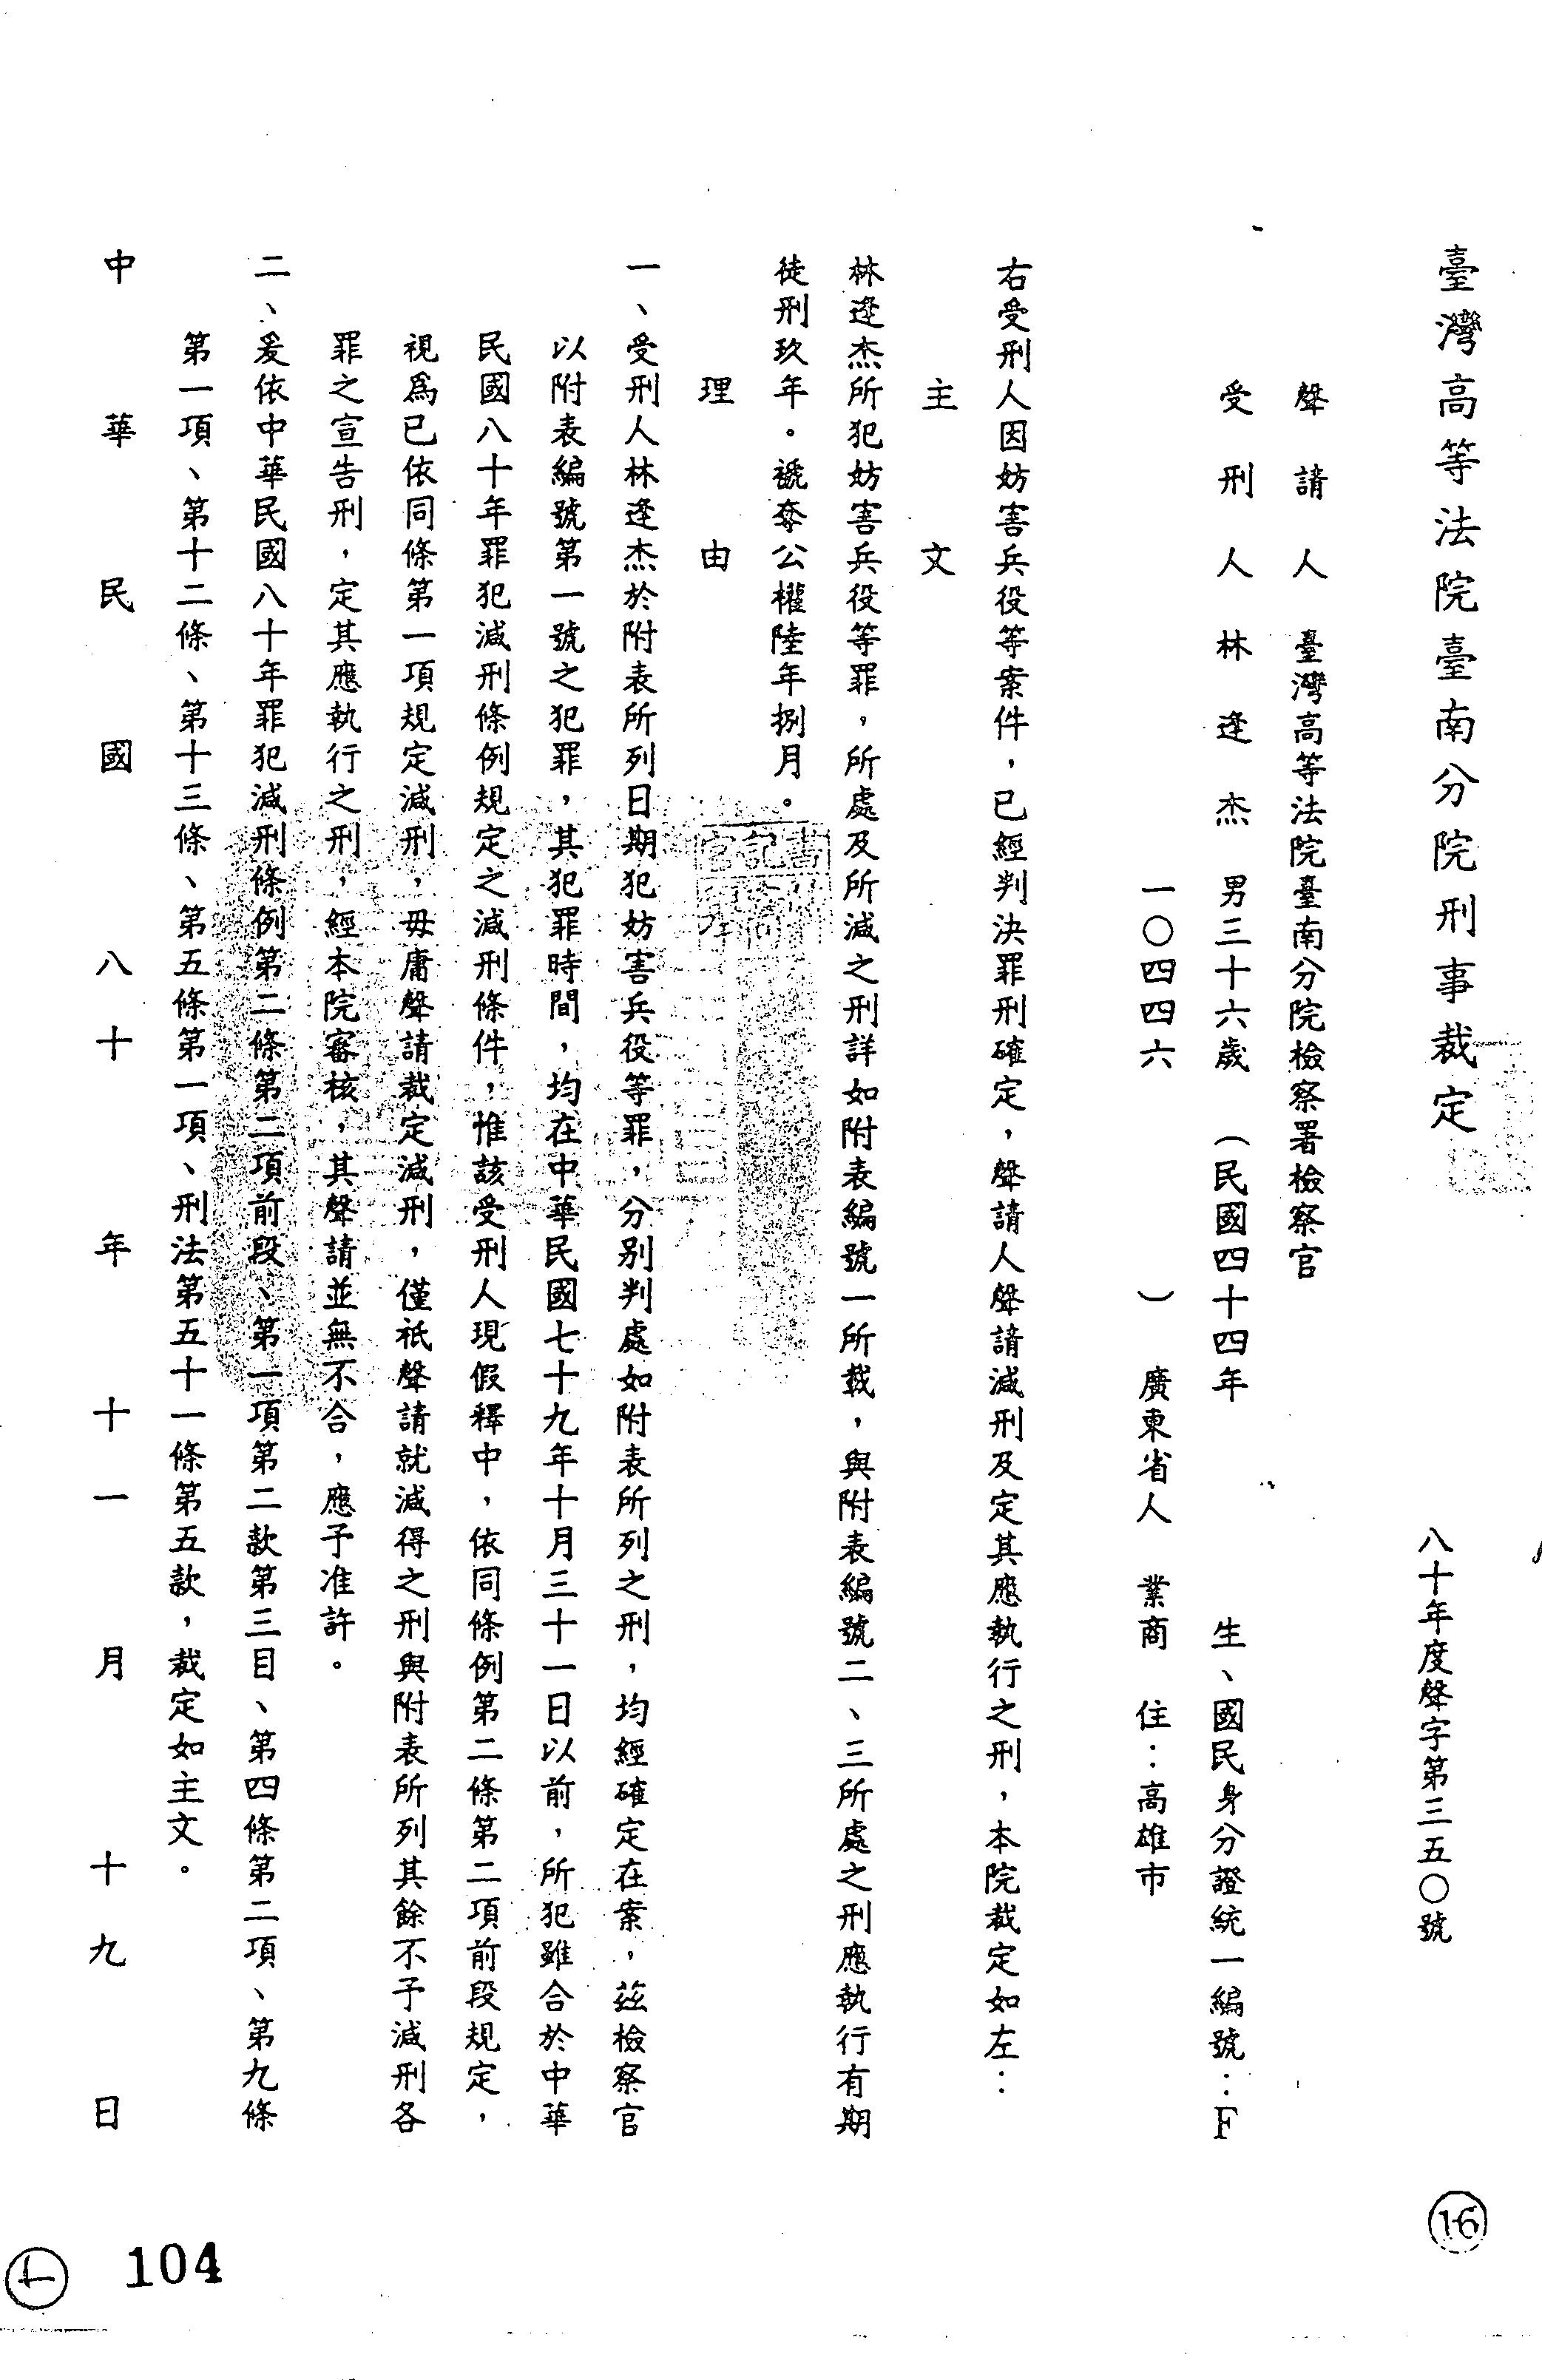 臺灣高等法院臺南分院刑事裁定
八十年度聲字第三五〇號
聲請人 臺灣高等法院臺南分院檢察署檢察官
受刑人 林逢杰 男三十六歲 （民國四十四年 生、國民身分證統一編號：F
一〇四四六 ） 廣東省人 業商 住：高雄市
右受刑人因妨害兵役等案件，已經判決罪刑確定，聲請人聲請減刑及定其應執行之刑，本院裁定如左：
主文
林逢杰所犯妨害兵役等罪，所處及所減之刑詳如附表編號一所載，與附表編號二、三所處之刑應執行有期
徒刑玖年。褫奪公權陸年捌月。
理由
一、受刑人林逢杰於附表所列日期犯妨害兵役等罪，分別判處如附表所列之刑，均經確定在案，茲檢察官
以附表編號第一號之犯罪，其犯罪時間，均在中華民國七十九年十月三十一日以前，所犯雖合於中華
民國八十年罪犯減刑條例規定之減刑條件，惟該受刑人現假釋中，依同條例第二條第二項前段規定，
視為已依同條第一項規定減刑，毋庸聲請裁定減刑，僅祇聲請就減得之刑與附表所列其餘不予減刑各
罪之宣告刑，定其應執行之刑，經本院審核，其聲請並無不合，應予准許。
二、爰依中華民國八十年罪犯減刑條例第二條第二項前段、第一項第二款第三目、第四條第二項、第九條
第一項、第十二條、第十三條、第五條第一項、刑法第五十一條第五款，裁定如主文。
中華民國八十年十一月十九日
16
104